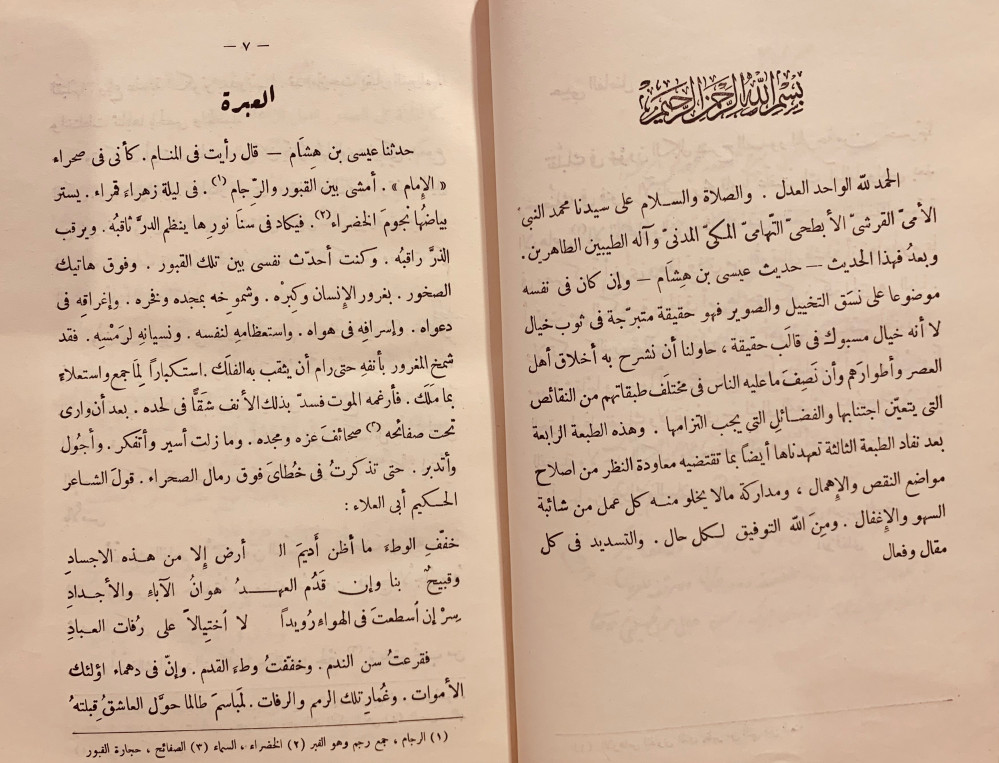 بسم الله الرحمن الرحيم
الحمد لله الواحد العدل . والصلاة والســلام على سيدنا محمد النبىّ
الأمىّ القرشىّ الأبطحىّ التّهامىّ المـكىّ المدنىّ وآله الطيبين الطاهرين .
وبعدُ فهذا الحديث — حديث عيسى بن هِشَام — وإن كان فى نفسه
موضوعا على نَسَق التخييل والصوير فهو حقيقة متبرّجة فى ثوب خيال
لا أنه خيال مسبوك فى قالَب حقيقة ، حاولنا أن نشرح به أخلاق أهل
العصر وأطوارَهم وأن نَصِفَ ما عليه الناس فى مختلَف طبقاتهم من النقائص
التى يتعيّن اجتنابها والفضـائـل التى يجب التزامها . وهذه الطبعة الرابعة
بعد نفاد الطبعة الثالثة تعهدناها أيضاً بما تقتضيه معاودة النظر من اصلاح
مواضع النقص والإهمال ، ومداركة مالا يخلو منــه كل عمل من شائبة
السهو والإغفال . ومِنَ الله التوفيق لـكـل حال . والتسديد فى كل
مقال وفعال
— ٧ —
العبرة
حدثنا عيسى بن هِشَام — قال رأيت فى المنـام . كأنى فى صحراء
« الإمام » . أمشى بين القبور والرِّجام (١) . فى ليلة زهراءَ قمراء . يستر
بياضُها نجومَ الخضراء (٢) . فيكاد فى سنَا نورِها ينظم الدرَّ ثاقبُه . ويرقب
الذرَّ راقبُه . وكنت أحدّث نفسى بين تلك القبور . وفوق هاتيك
الصخور . بغرور الإِنسان وكِبْرِه . وشموخه بمجده ونفره . وإغراقِه فى
دعواه . وإسرافِه فى هواه . واستعظامهِ لنفسه . ونسيانِه لرَمْسِه . فقد
شمخ المغرور بأنفهِ حتى رام أن يثقب به الفلَك . استـكباراً لِمَا جمع واستعلاءً
بما ملَك . فأرغمه الموت فسدّ بذلك الأنف شَقًّا فى لحده . بعد أن وارى
تحت صفائحه (٣) صحائفَ عزه ومجده . وما زلت أسير وأتفكر . وأجُول
وأتدبر . حتى تذكرتُ فى خُطاىَ فوق رمال الصحراء . قولَ الشـاعر
الحـكيم أبى العلاء :
خفِّفِ الوطءَ ما أظن أَديمَ الـ أرض إِلا من هــذه الاجسادِ
وقبيحٌ بنا وإن قَدُم العهــدُ هوانُ الآباءِ والأجـدادِ
سِرْ إن أسطعتَ فى الهواءِ رُويداً لا أختِيالاً على رُفات العبادِ
فقرعتُ سن الندم . وخفّفتُ وطءَ القدم . وإنّ فى دهماء اؤلئك
الأموات . وغُمارِ تلك الرمم والرفات . لمَباسمَ طالما حوَّل العاشقُ قِبلتهُ
(١) الرجام ، جمع رجم وهو القبر (٢) الخضراء ، السماء (٣) الصفائح ، حجارة القبور